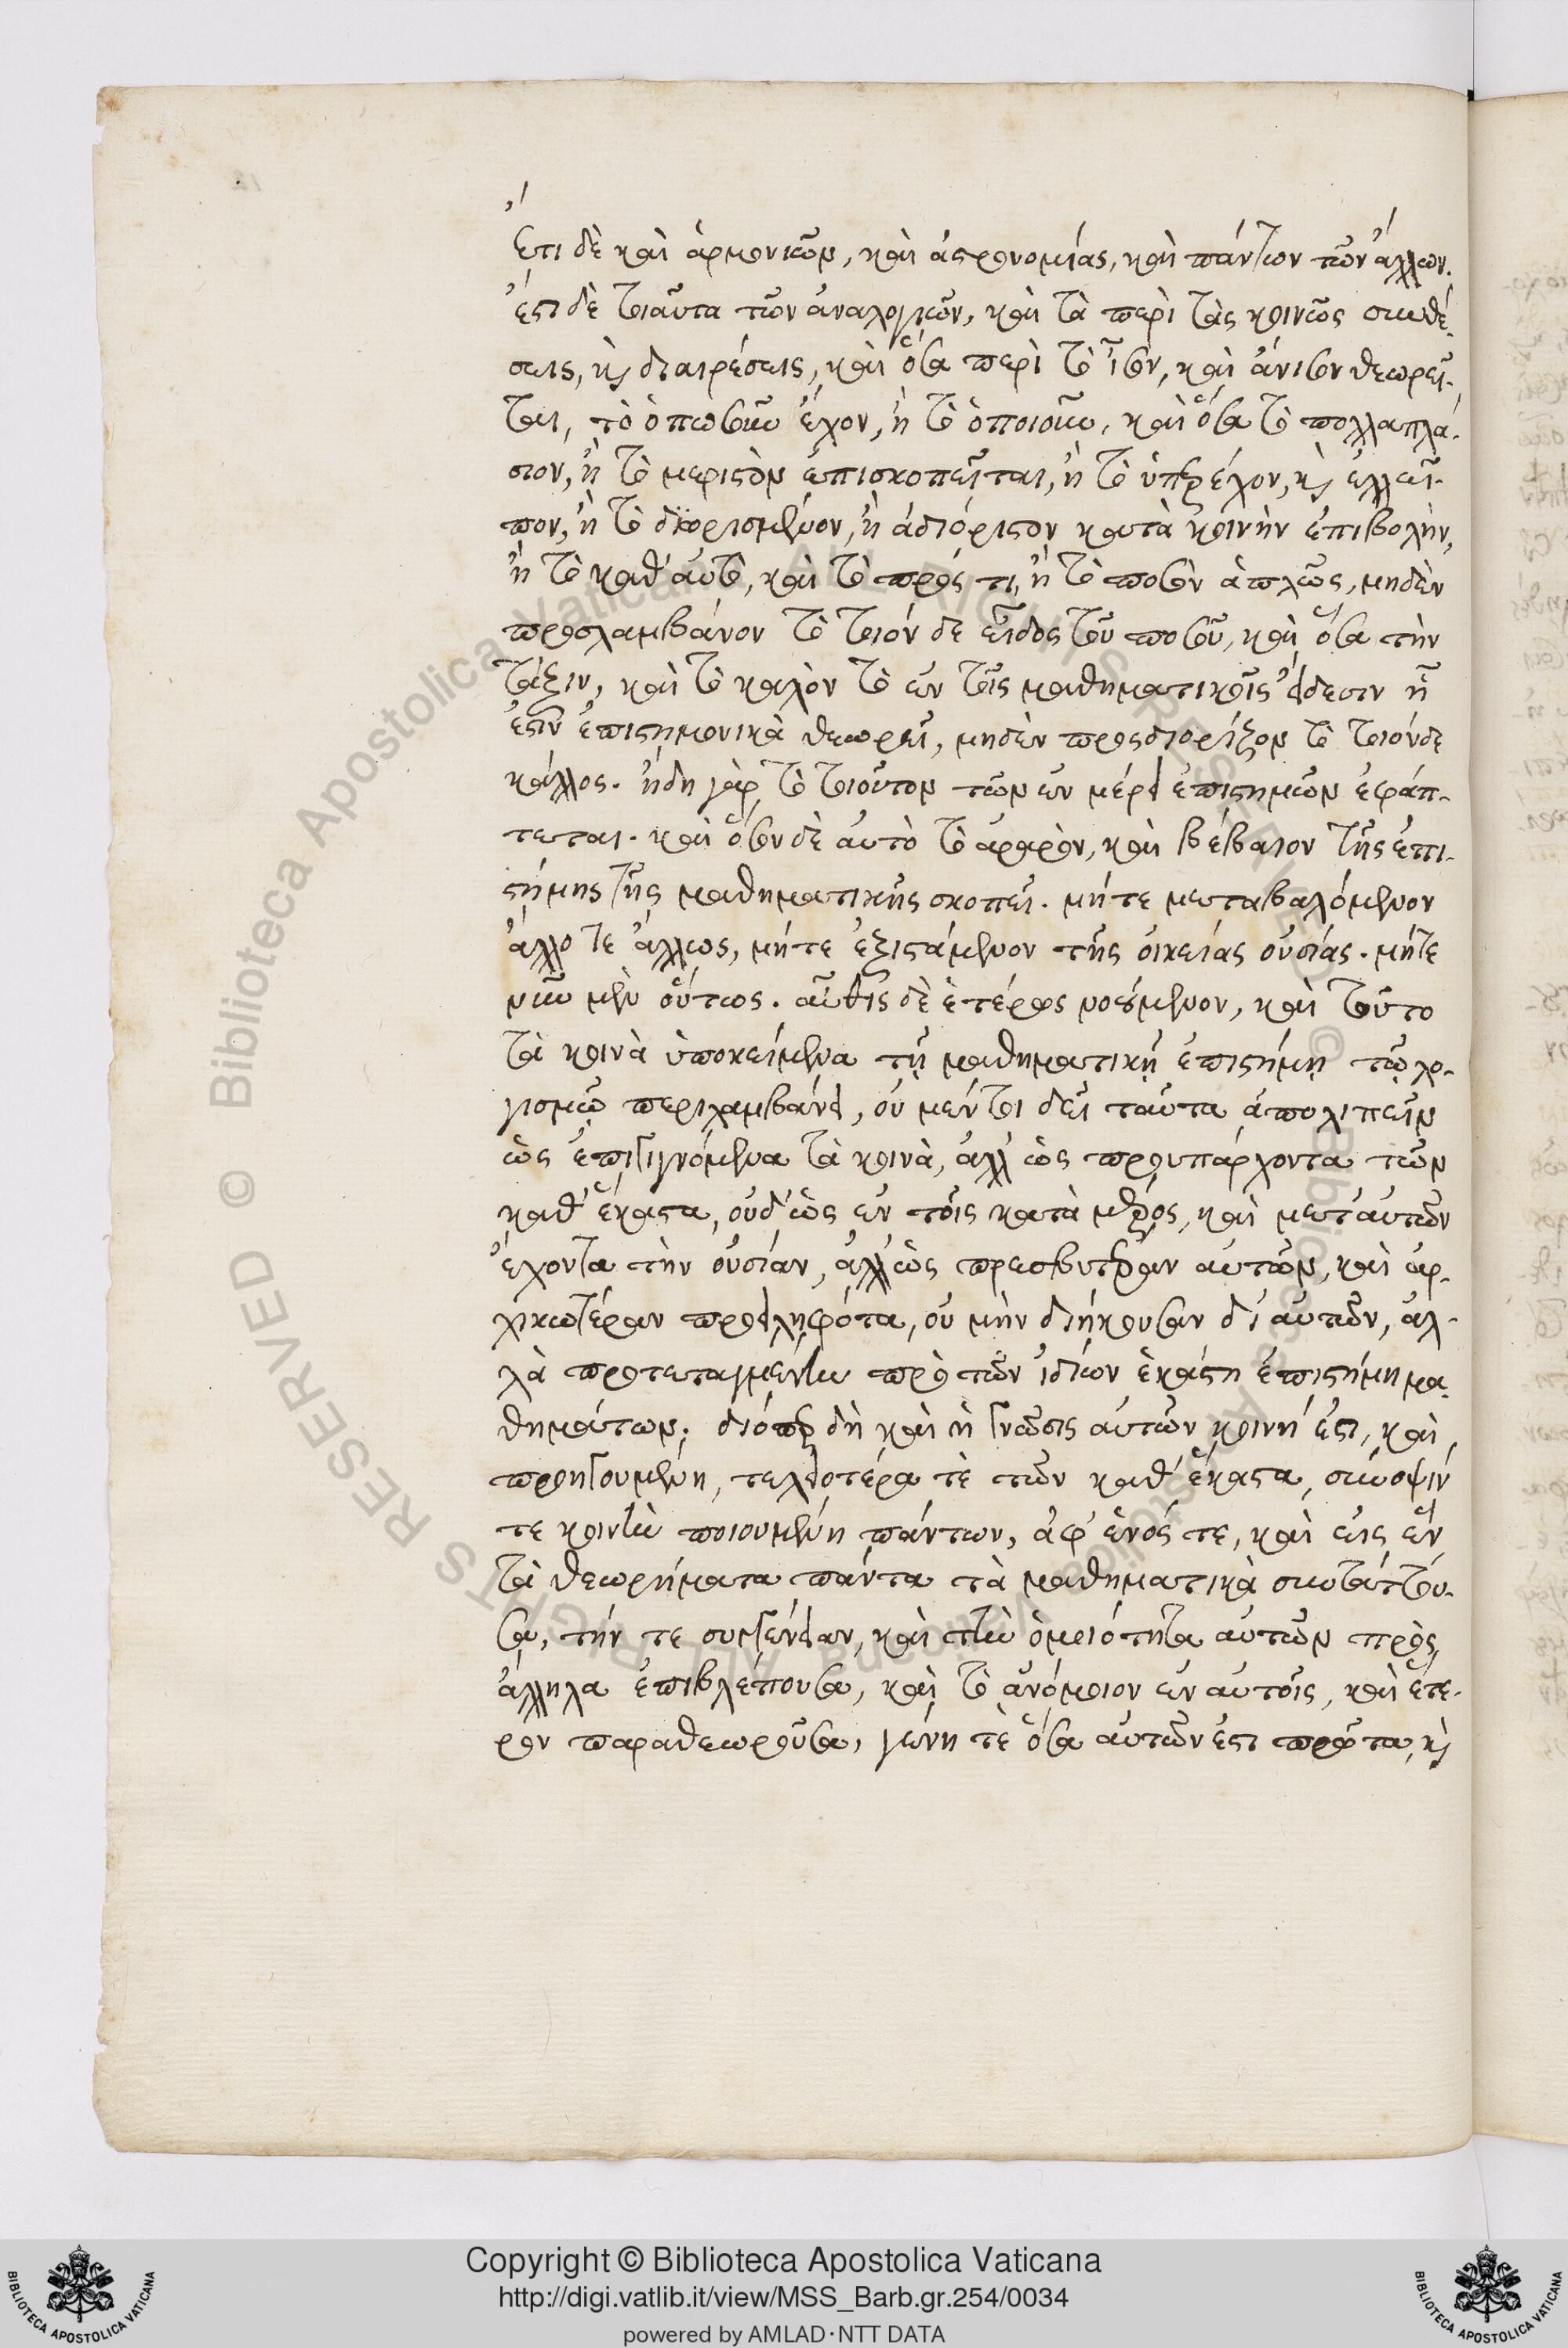 Ἔτι δὲ καὶ ἁρμονικῶν, καὶ ἀστρονομίας, καὶ πάντων τῶν ἄλλων.
ἔστι δὲ τοιαῦτα τῶν ἀναλογιῶν, καὶ τὰ περὶ τὰς κοινῶς συνθέ-
σεις, καὶ διαιρέσεις, καὶ ὅσα περὶ τὸ ἶσον, καὶ ἄνισον θεωρεῖ-
ται, τὸ ὁπωσοῦν ἔχον, ἢ τὸ ὁποιοῦν, καὶ ὅσα τὸ πολλαπλά-
σιον, ἢ τὸ μεριστὸν ἐπισκοπεῖται, ἢ τὸ ὑπερέχον, καὶ ἐλλεῖ-
πον, ἢ τὸ διορισμένον, ἢ ἀδιόριστον κατὰ κοινὴν ἐπιβολὴν,
ἢ τὸ καθ' αὑτὸ, καὶ τὸ πρός τι, ἢ τὸ ποσὸν ἁπλῶς, μηδὲν
προσλαμβάνον τὸ τοιόν δε εἶδος τοῦ ποσοῦ, καὶ ὅσα τὴν
τάξιν, καὶ τὸ καλὸν τὸ ἐν τοῖς μαθηματικοῖς εἴδεσιν ᾗ
ἐστὶν ἐπιστημονικὰ θεωρεῖ, μηδὲν προσδιορίζον τὸ τοιόνδε
κάλλος. ἤδη γὰρ τὸ τοιοῦτον τῶν ἐν μέρει ἐπιστημῶν ἐφάπ-
τεται. καὶ ὅσον δὲ αὐτὸ τὸ ἀραρὸν, καὶ βέβαιον τῆς ἐπι-
στήμης τῆς μαθηματικῆς σκοπεῖ. μήτε μεταβαλόμενον
ἄλλο τε ἄλλως, μήτε ἐξιστάμενον τῆς οἰκείας οὐσίας. μήτε
νῦν μὲν οὕτως. αὖθις δὲ ἑτέρως νοούμενον, καὶ τοῦτο
τὰ κοινὰ ὑποκείμενα τῇ μαθηματικῇ ἐπιστήμῃ τῷ λο-
γισμῷ περιλαμβάνει, οὐ μέντοι δεῖ ταῦτα ἀπολιπεῖν
ὡς ἐπιγιγνόμενα τὰ κοινὰ, ἀλλ' ὡς προυπάρχοντα τῶν
καθ' ἕκαστα, οὐδ' ὡς ἐν τοῖς κατὰ μέρος, καὶ μετ' αὐτῶν
ἔχοντα τὴν οὐσίαν, ἀλλ' ὡς πρεσβυτέραν αὐτῶν, καὶ ἀρ-
χικωτέραν προειληφότα, οὐ μὴν διήκουσαν δι' αὐτῶν, ἀλ-
λὰ προτεταγμένην πρὸ τῶν ἰδίων ἑκάστῃ ἐπιστήμῃ μα-
θημάτων. διόπερ δὴ καὶ ἡ γνῶσις αὐτῶν κοινή ἐστι, καὶ
προηγουμένη, τελειοτέρα τὲ τῶν καθ' ἕκαστα, σύνοψίν
τε κοινὴν ποιουμένη πάντων, ἀφ' ἑνός τε, καὶ εἰς ἓν
τὰ θεωρήματα πάντα τὰ μαθηματικὰ συντάττου-
σα, τήν τε συγγένειαν, καὶ τὴν ὁμοιότητα αὐτῶν πρὸς
ἄλληλα ἐπιβλέπουσα, καὶ τὸ ἀνόμοιον ἐν αὐτοῖς, καὶ ἕτε-
ρον παραθεωροῦσα, γένη τὲ ὅσα αὐτῶν ἐστι πρῶτα, καὶ
Copyright © Biblioteca Apostolica Vaticana
http://digi.vatlib.it/view/MSS_Barb.gr.254/0034
powered by AMLAD·NTT DATA